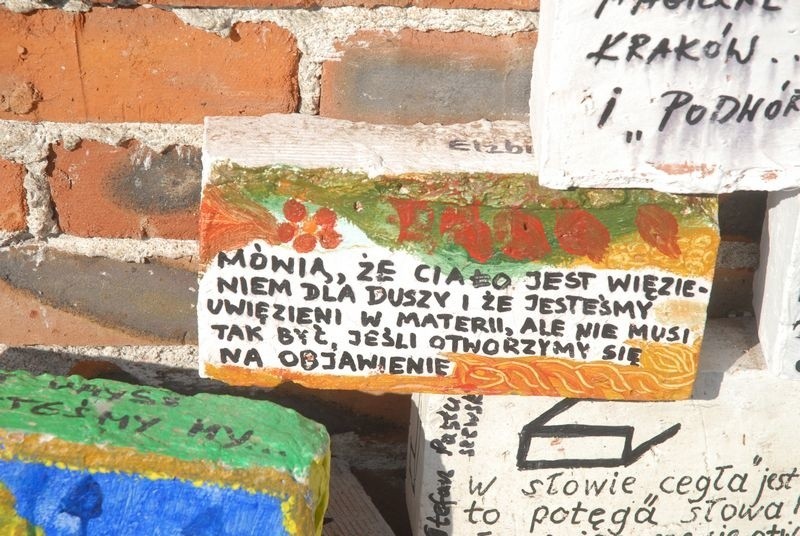 KRAKÓW..
I „PODHÓR
Elżbi
MÓWIĄ, ŻE CIAŁO JEST WIĘZIE-
NIEM DLA DUSZY I ŻE JESTEŚMY
UWIĘZIENI W MATERII, ALE NIE MUSI
TAK BYĆ, JEŚLI OTWORZYMY SIĘ
NA OBJAWIENIE
TEŚMY MY...
Stefan
w słowie cegła" jest
to potęga słowa